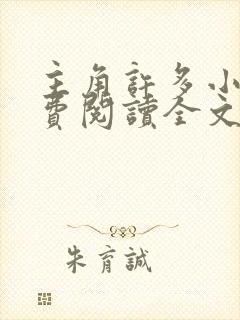 主角許多小
費閱讀全文
朱育誠